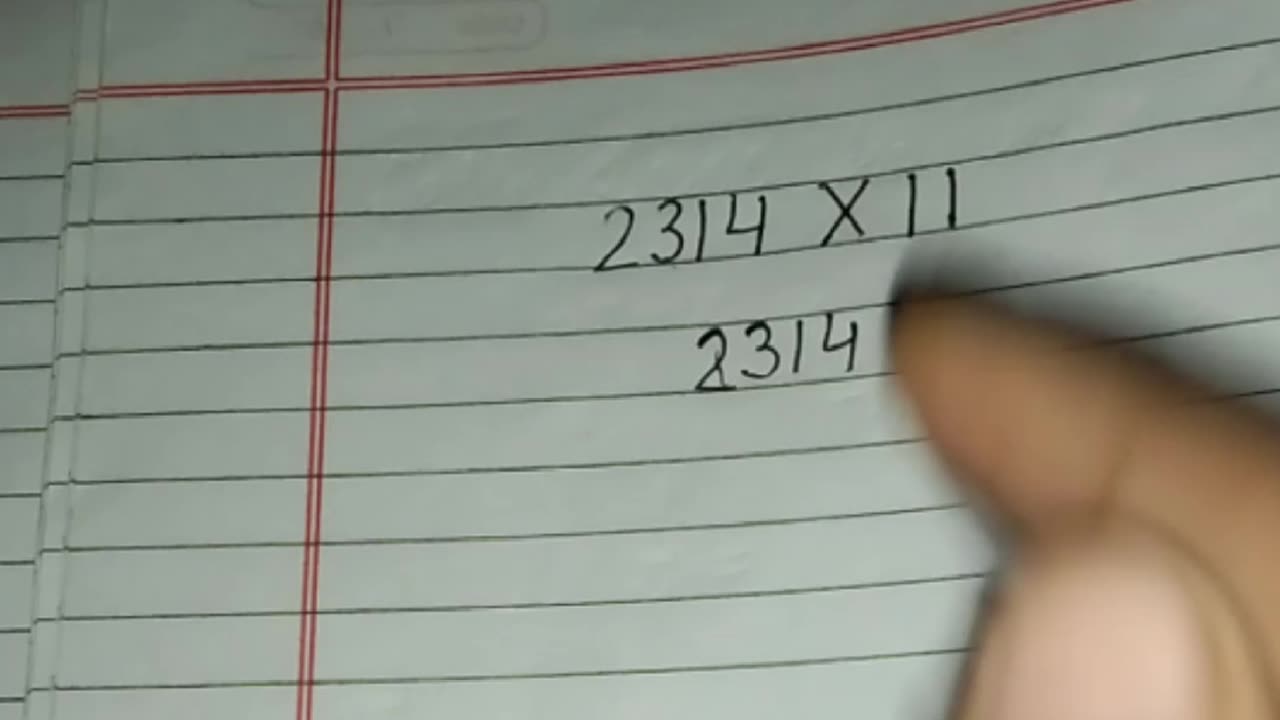 2314 X 11
2314